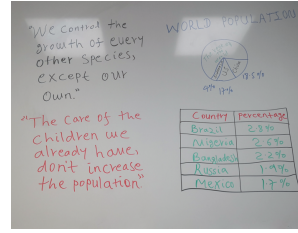 "We control the
growth of every
other species,
except our
own."
"The care of the
children we
already have,
don't increase
the population"
WORLD POPULATION
17.5%
Country percentage
Brazil 2.8%
Nigeria 2.6%
Bangladesh 2.2%
Russia 1.9%
Mexico 1.7%